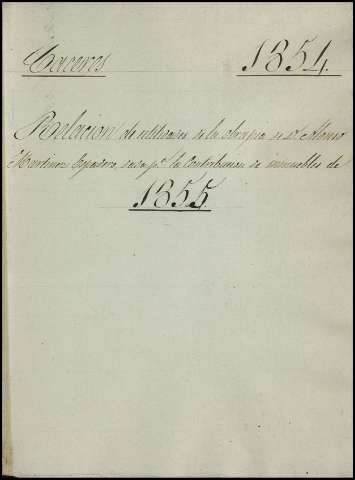 Caceres 1854.
Relacion de utilidades de la obrapia de Dn. Alonso
Martinez Espadero, dada pa. la Contribucion de inmuebles de
1855.